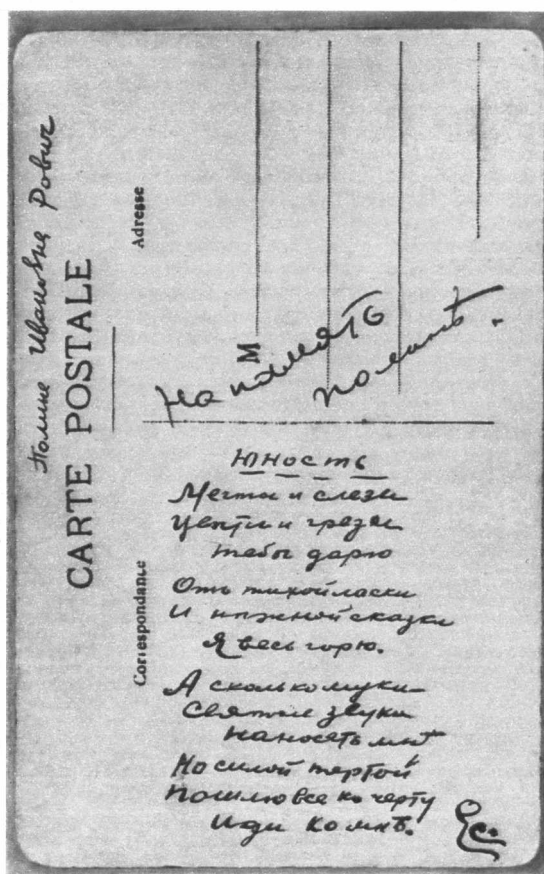 Полине Ивановне Рович
CARTE POSTALE
Adresse
M
На память
Полинѣ.
Correspondance
Юность
Мечты и слезы
Цвѣты и грезы
Тебѣ дарю
Отъ тихой ласки
И нѣжной сказки
Я весь горю.
А сколько муки
Святые звуки
Наносятъ мнѣ
Но силой тертой
Пошлю все къ черту
Иди ко мнѣ.